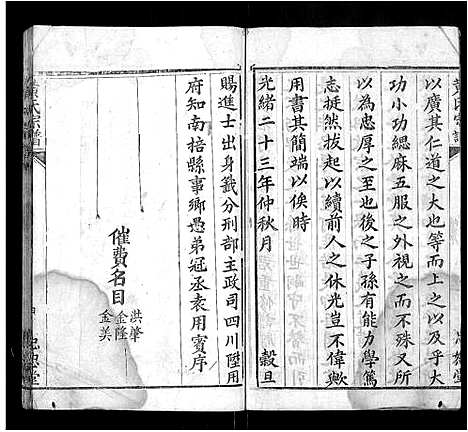 黃氏宗譜
以廣其仁道之大也等而上之以及大
功小功緦麻五服之外視之而不殊又所
以為忠厚之至也後之子孫有能力學篤
志挺然拔起以續前人之休光豈不偉歟
用書其簡端以俟時
光緒二十三年仲秋月 穀旦
賜進士出身籤分刑部主政司四川陞用
府知南掊縣事鄉愚弟冠丞袁用賓序
催費名目
洪肇
金隆
金美